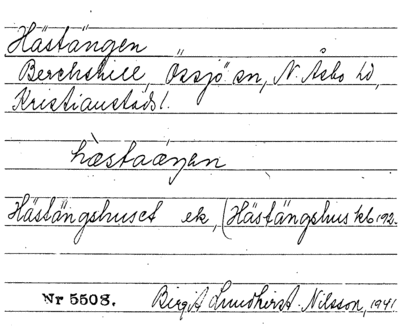 Hästängen
Berchshill, Össjö sn, N. Åsbo hd,
Kristianstads l.
hæ̀staæŋen
Hästängshuset ek, (Hästängshus kb 192-
Nr 5508. Birgit Lundkvist-Nilsson, 1941